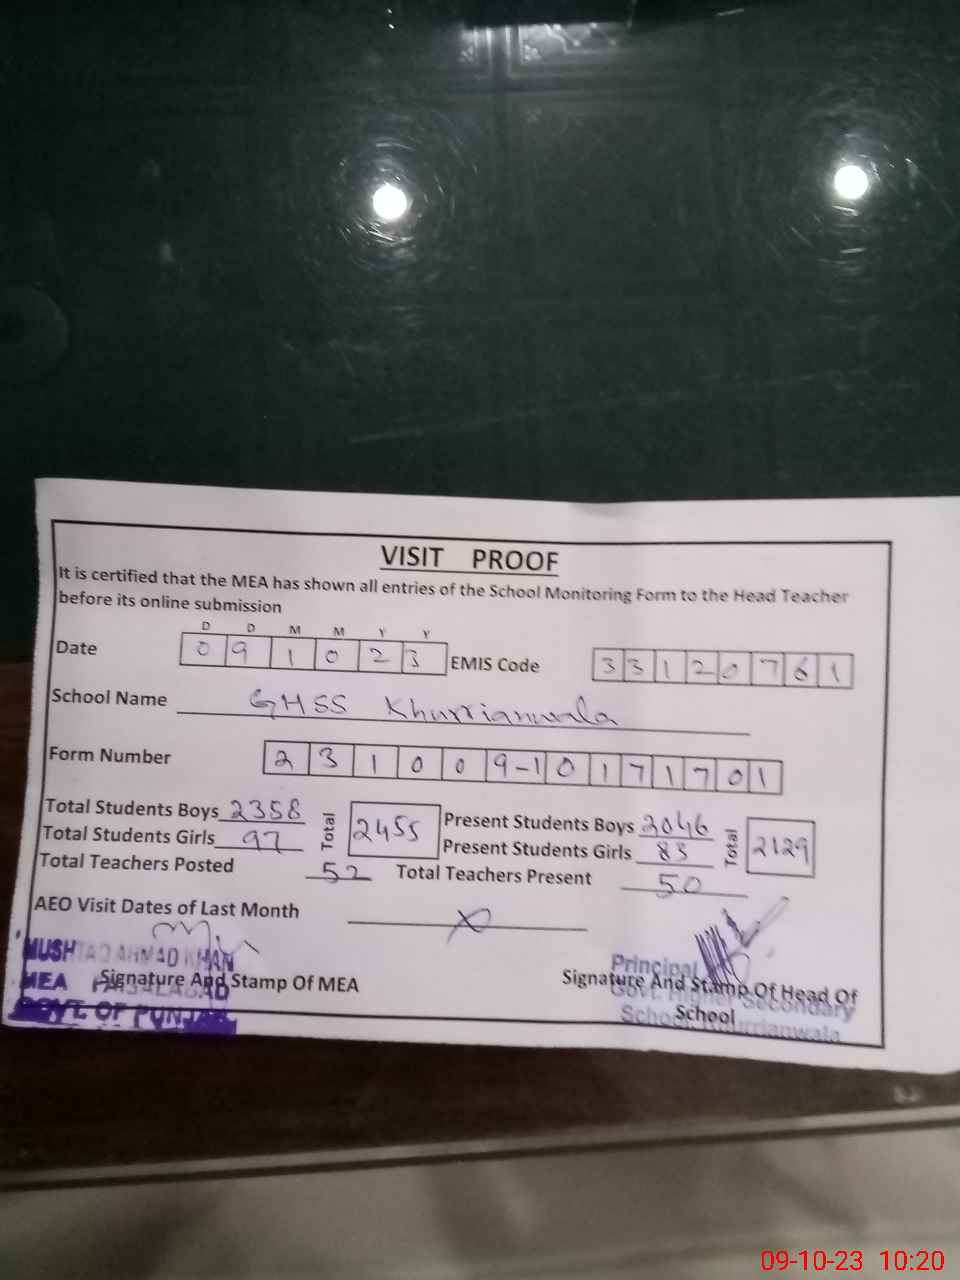 VISIT PROOF
It is certified that the MEA has shown all entries of the School Monitoring Form to the Head Teacher
before its online submission
D D M M Y Y
Date 0 9 1 0 2 3 EMIS Code 3 3 1 2 0 7 6 1
School Name GHSS Khurrianwala
Form Number 2 3 1 0 0 9-1 0 1 7 1 7 0 1
Total Students Boys 2358 Total 2455 Present Students Boys 2046 Total 2129
Total Students Girls 97 Present Students Girls 83
Total Teachers Posted 52 Total Teachers Present 50
AEO Visit Dates of Last Month X
MUSHTAQ AHMAD KHAN
MEA FAISALABAD
GOVT. OF PUNJAB
Signature And Stamp Of MEA
Principal
Govt. Higher Secondary
School Khurrianwala
Signature And Stamp Of Head Of
School
09-10-23 10:20